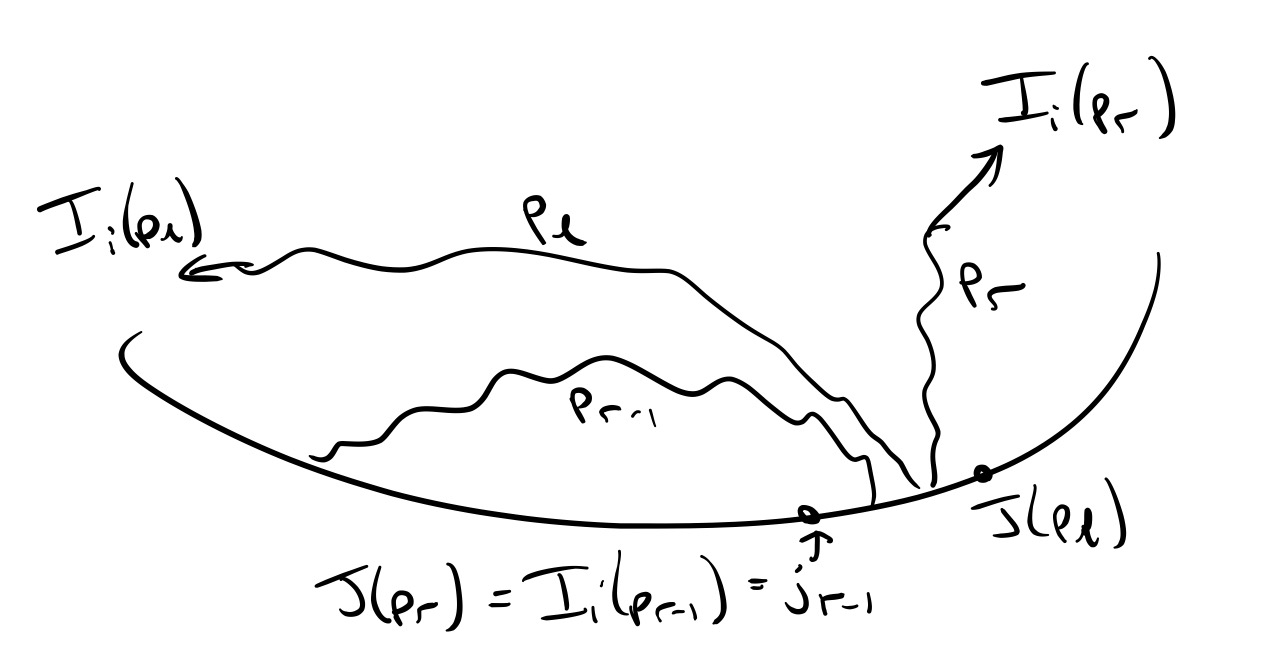 I_i(p_r)
I_i(p_l)
p_l
p_r
p_{r-1}
J(p_l)
J(p_r) = I_i(p_{r-1}) = j_{r-1}